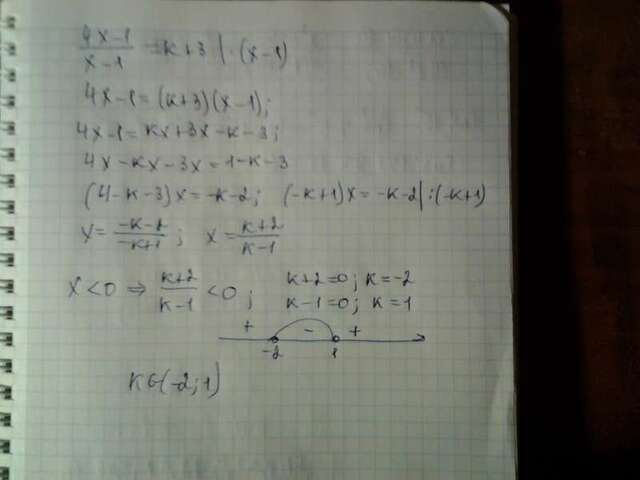 4x-1/x-1 = k+3 | ·(x-1)
4x-1=(k+3)(x-1);
4x-1=kx+3x-k-3;
4x-kx-3x=1-k-3
(4-k-3)x=-k-2; (-k+1)x=-k-2|:(-k+1)
x=-k-2/-k+1; x=k+2/k-1
x<0 ⇒ k+2/k-1 <0; k+2=0; k=-2
k-1=0; k=1
+ - +
-2 1
k∈(-2;1)